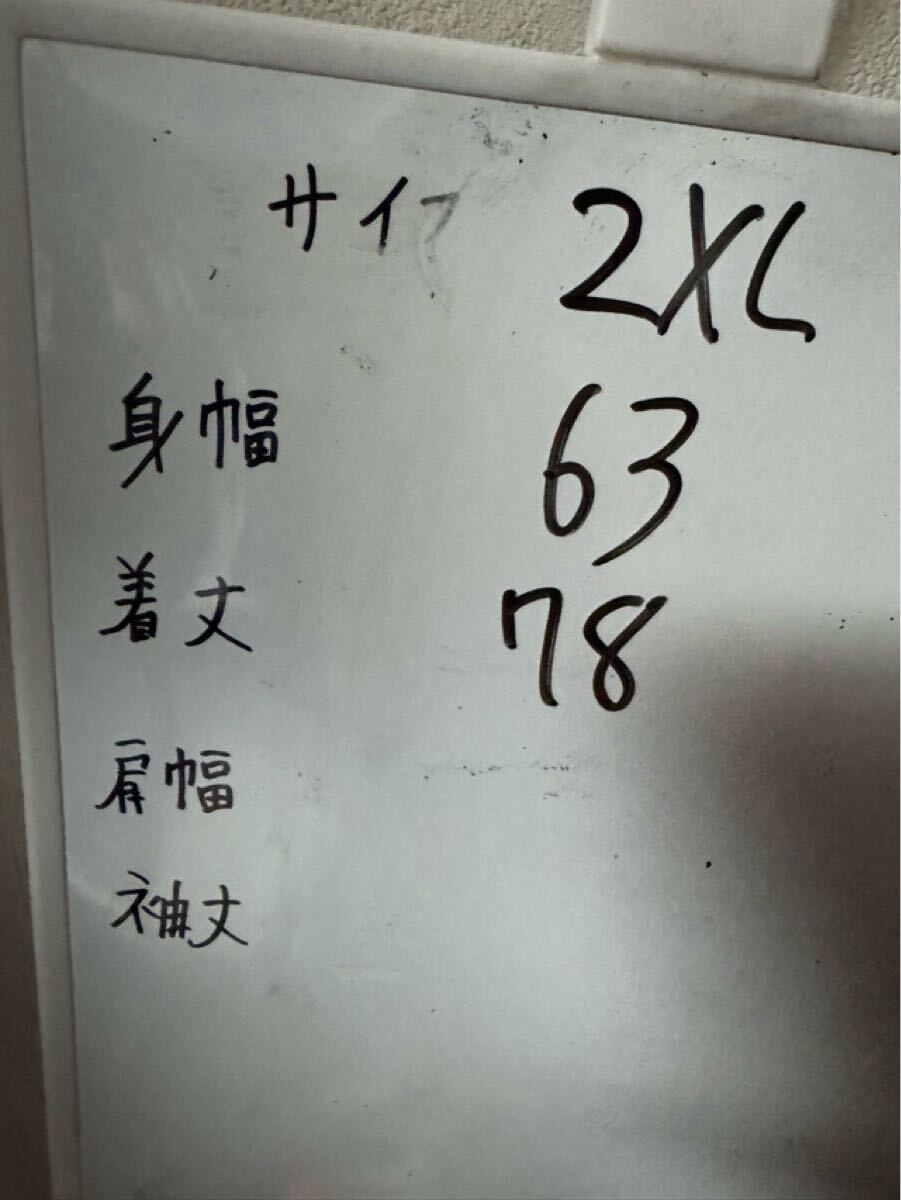 サイ 2XL
身幅 63
着丈 78
肩幅
袖丈